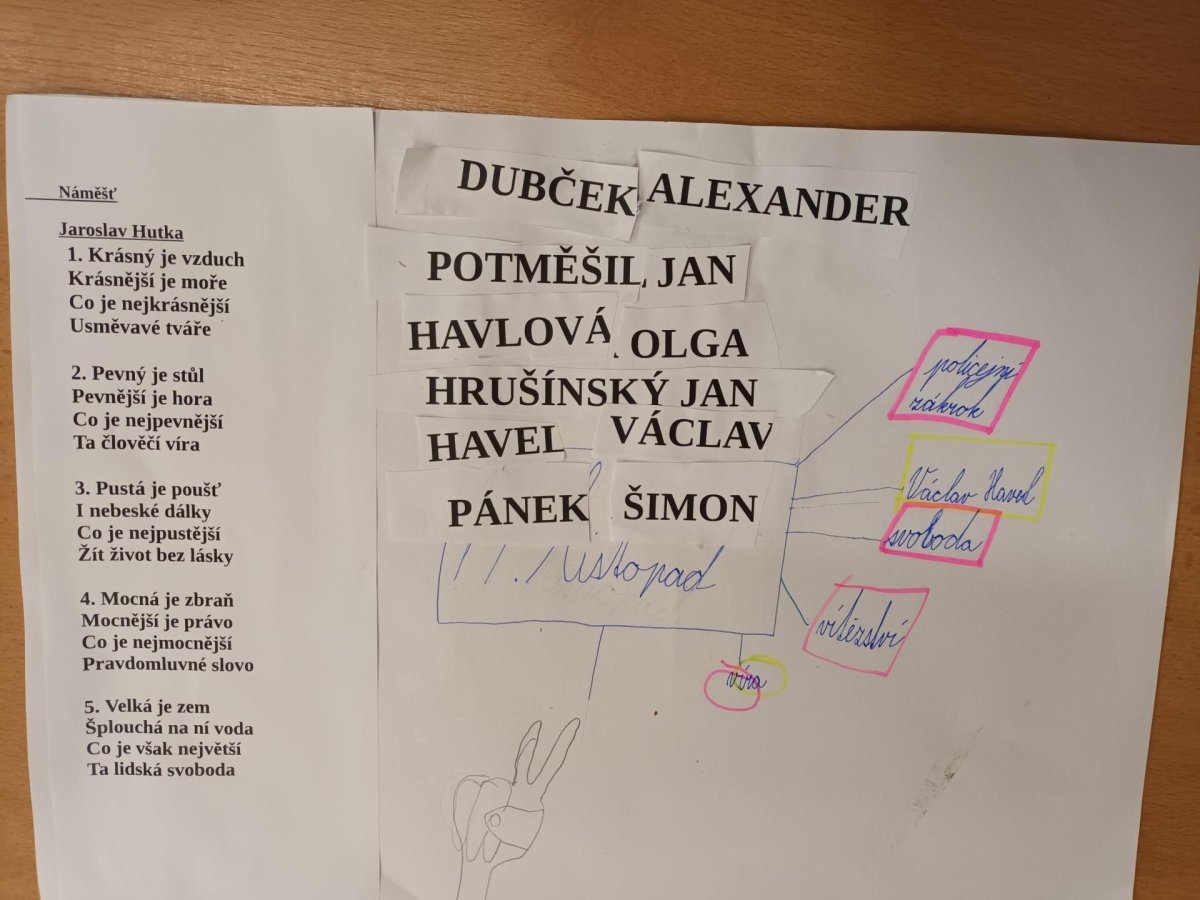 Náměšť
Jaroslav Hutka
1. Krásný je vzduch
Krásnější je moře
Co je nejkrásnější
Usměvavé tváře
2. Pevný je stůl
Pevnější je hora
Co je nejpevnější
Ta člověčí víra
3. Pustá je poušť
I nebeské dálky
Co je nejpustější
Žít život bez lásky
4. Mocná je zbraň
Mocnější je právo
Co je nejmocnější
Pravdomluvné slovo
5. Velká je zem
Šplouchá na ní voda
Co je však největší
Ta lidská svoboda
DUBČEK ALEXANDER
POTMĚŠIL JAN
HAVLOVÁ OLGA
HRUŠÍNSKÝ JAN
HAVEL VÁCLAV
PÁNEK ŠIMON
17. listopad
policejní
zákrok
Václav Havel
svoboda
vítězství
víra